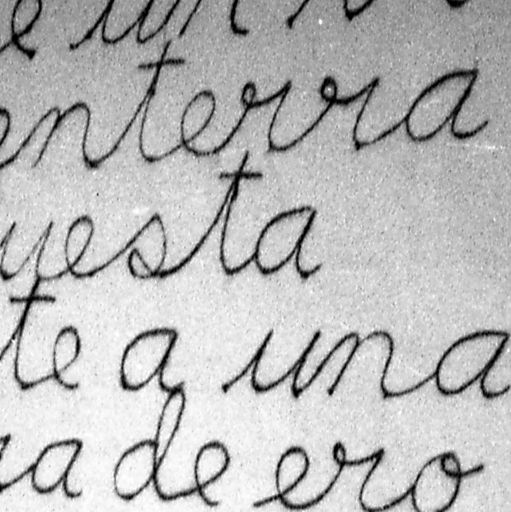 e un
enterra
uesta
te a una
a de ero